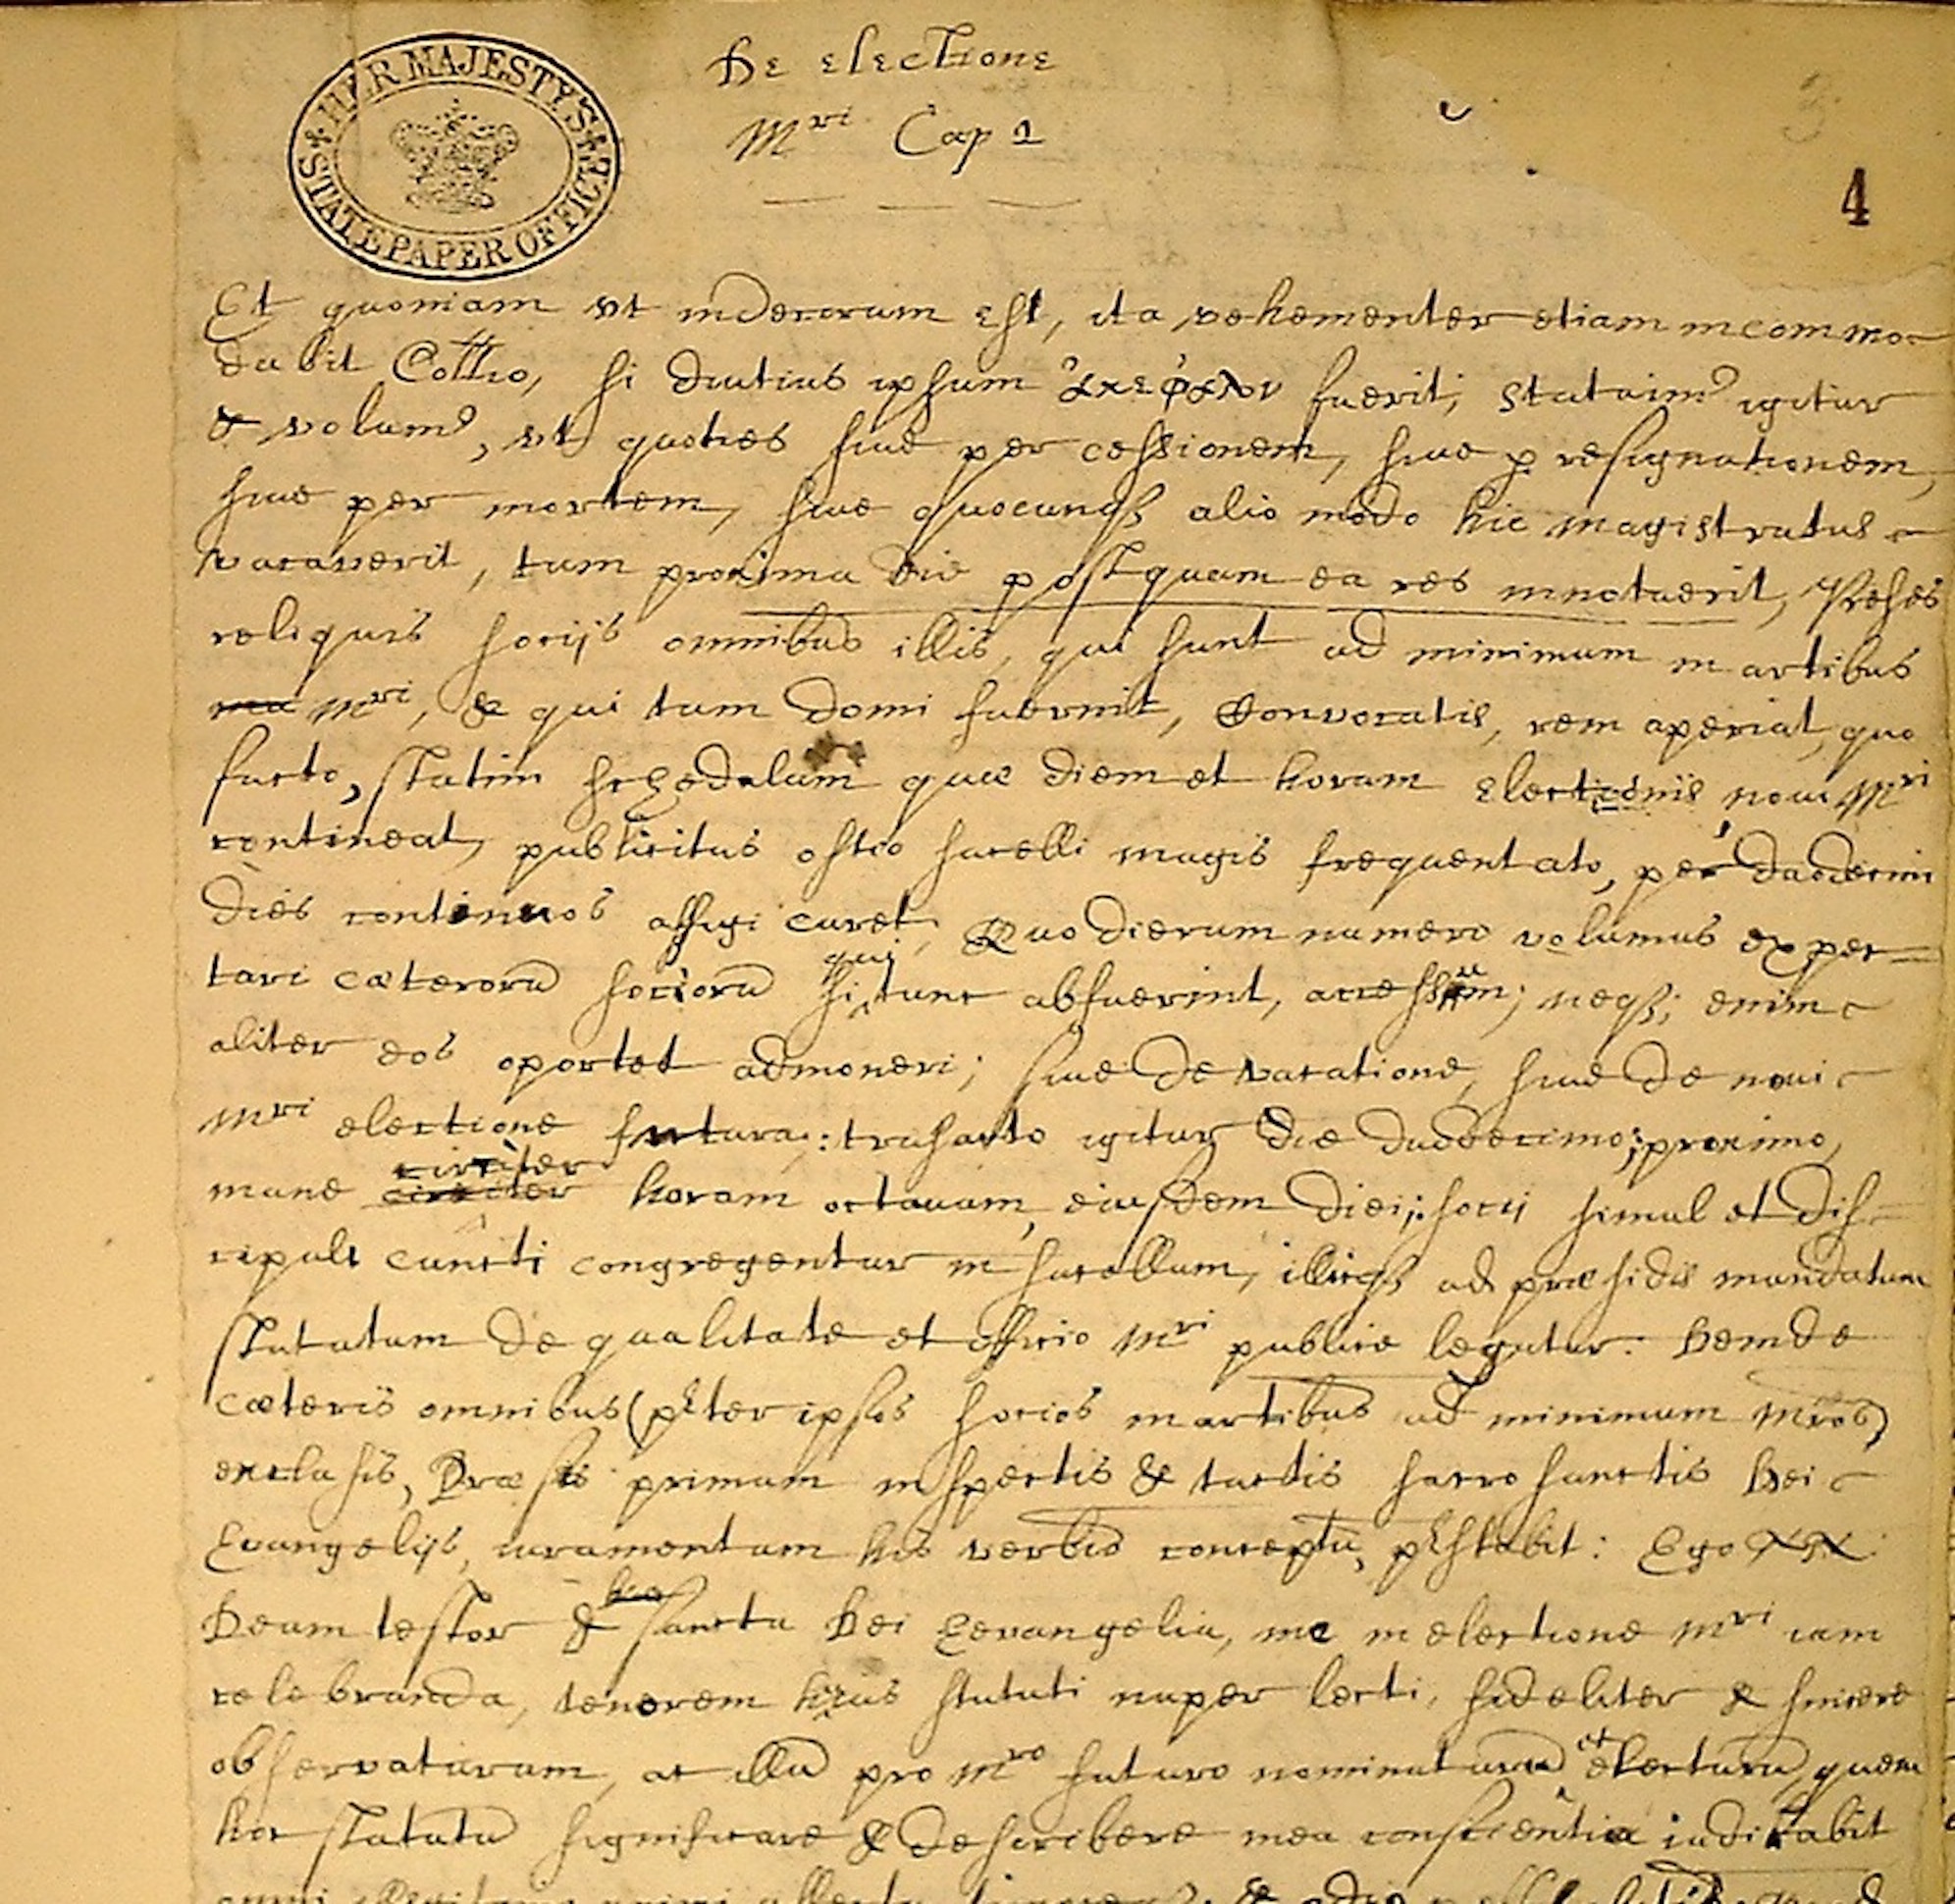 HER MAJESTY'S STATE PAPER OFFICE
De electione
Mri Cap 1
4
Et quoniam ut indecorum est, ita vehementer etiam incommo-
dabit Collio, si diutius ipsum ἀκέφαλον fuerit; statuim9 igitur
& volum9, ut quoties sive per cessionem, sive p resignationem,
sive per mortem, sive quocunq3 alio modo hic magistratus
vacaverit, tum proxima die postquam ea res innotuerit, Preses
reliquis socijs omnibus illis, qui sunt ad minimum in artibus
ma Mri, & qui tum domi fuerint, convocatis, rem aperiat, quo
facto, statim schedulam quae diem et horam electionis novi Mri
contineat, publicitus ostio sacelli magis frequentato, per duodecim
dies continuos affigi curet, Quo dierum numero volumus expec=
tari cæterorū sociorū si qui tunc abfuerint, accessum; neq3; enim
aliter eos oportet admoneri; sive de vacatione, sive de novi
Mri electione futura: trasacto igitur die duodecimo; proximo,
mane circiter circiter horam octavam, eiusdem diei; socij simul et dis-
cipuli cuncti congregentur in sacellum, illicq3 ad præsidis mandatum
statutum de qualitate et officio Mri publice legatur. Deinde
cæteris omnibus (pter ipsos socios in artibus ad minimum Mros)
exclusis, Præses primum inspectis & tactis sacrosanctis Dei
Evangelijs, iuramentum his verbis conceptū, pstabit: Ego NN
Deum testor & hæc sancta Dei Eevangelia, me in electione Mri iam
celebranda, tenorem huius statuti nuper lecti, fideliter & sincere
observaturum, ac illū pro Mro futuro nominaturū et electurū, quem
hoc statutū significare & describere mea conscientia iudicabit